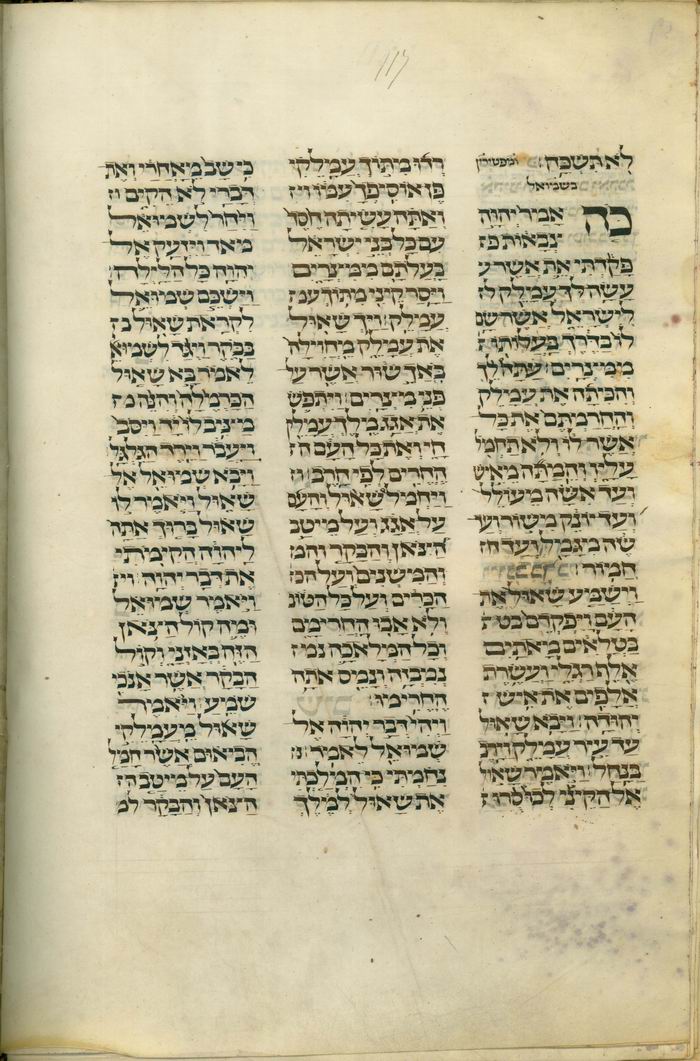 לא תשכח׃ ומפטירין
בשמואל
כה אמר יהוה
צבאות פז
פקדתי את אשר ע
עשה לך עמלק לז
לישראל אשר שם
לו בדרך בעלותו ז
ממצרים׃ עתה לך
והכיתה את עמלק
והחרמתם את כל
אשר לו ולא תחמל
עליו והמתה מאיש
ועד אשה מעולל
ועד יונק משור ועד
שה מגמל ועד חז
חמור׃
וישמע שאול את
העם ויפקדם בט ז
בטלאים מאתים
אלף רגלי ועשרת
אלפים את איש ז
יהודה׃ ויבא שאול
עד עיר עמלק וירב
בנחל׃ ויאמר שאול
אל הקיני לכו סרו ז
רדו מתוך עמלקי
פן אוסיפך עמו וז
ואתה עשיתה חסד
עם כל בני ישראל
בעלתם ממצרים
ויסר קיני מתוך עמ ז
עמלק׃ ויך שאול
את עמלק מחוילה
באך שור אשר על
פני מצרים׃ ויתפש
את אגג מלך עמלק
חי ואת כל העם הז
החרים לפי חרב׃ וז
ויחמל שאול והעם
על אגג ועל מיטב
הצאן והבקר והמ
והמשנים ועל הכז
הכרים ועל כל הטוב
ולא אבו החרימם
וכל המלאכה נמ ז
נמבזה ונמס אתה
החרימו׃
ויהי דבר יהוה אל
שמואל לאמר׃ נז
נחמתי כי המלכתי
את שאול למלך
כי שב מאחרי ואת
דברי לא הקים וז
ויחר לשמואל
מאד ויזעק אל
יהוה כל הלילה׃
וישכם שמואל
לקראת שאול בז
בבקר ויגד לשמואל
לאמר בא שאול
הכרמלה והנה מז
מציב לו יד ויסב
ויעבר וירד הגלגל׃
ויבא שמואל אל
שאול ויאמר לו
שאול ברוך אתה
ליהוה הקימתי
את דבר יהוה׃ ויז
ויאמר שמואל
ומה קול הצאן
הזה באזני וקול
הבקר אשר אנכי
שמע׃ ויאמר
שאול מעמלקי
הביאום אשר חמל
העם על מיטב הז
הצאן והבקר למ